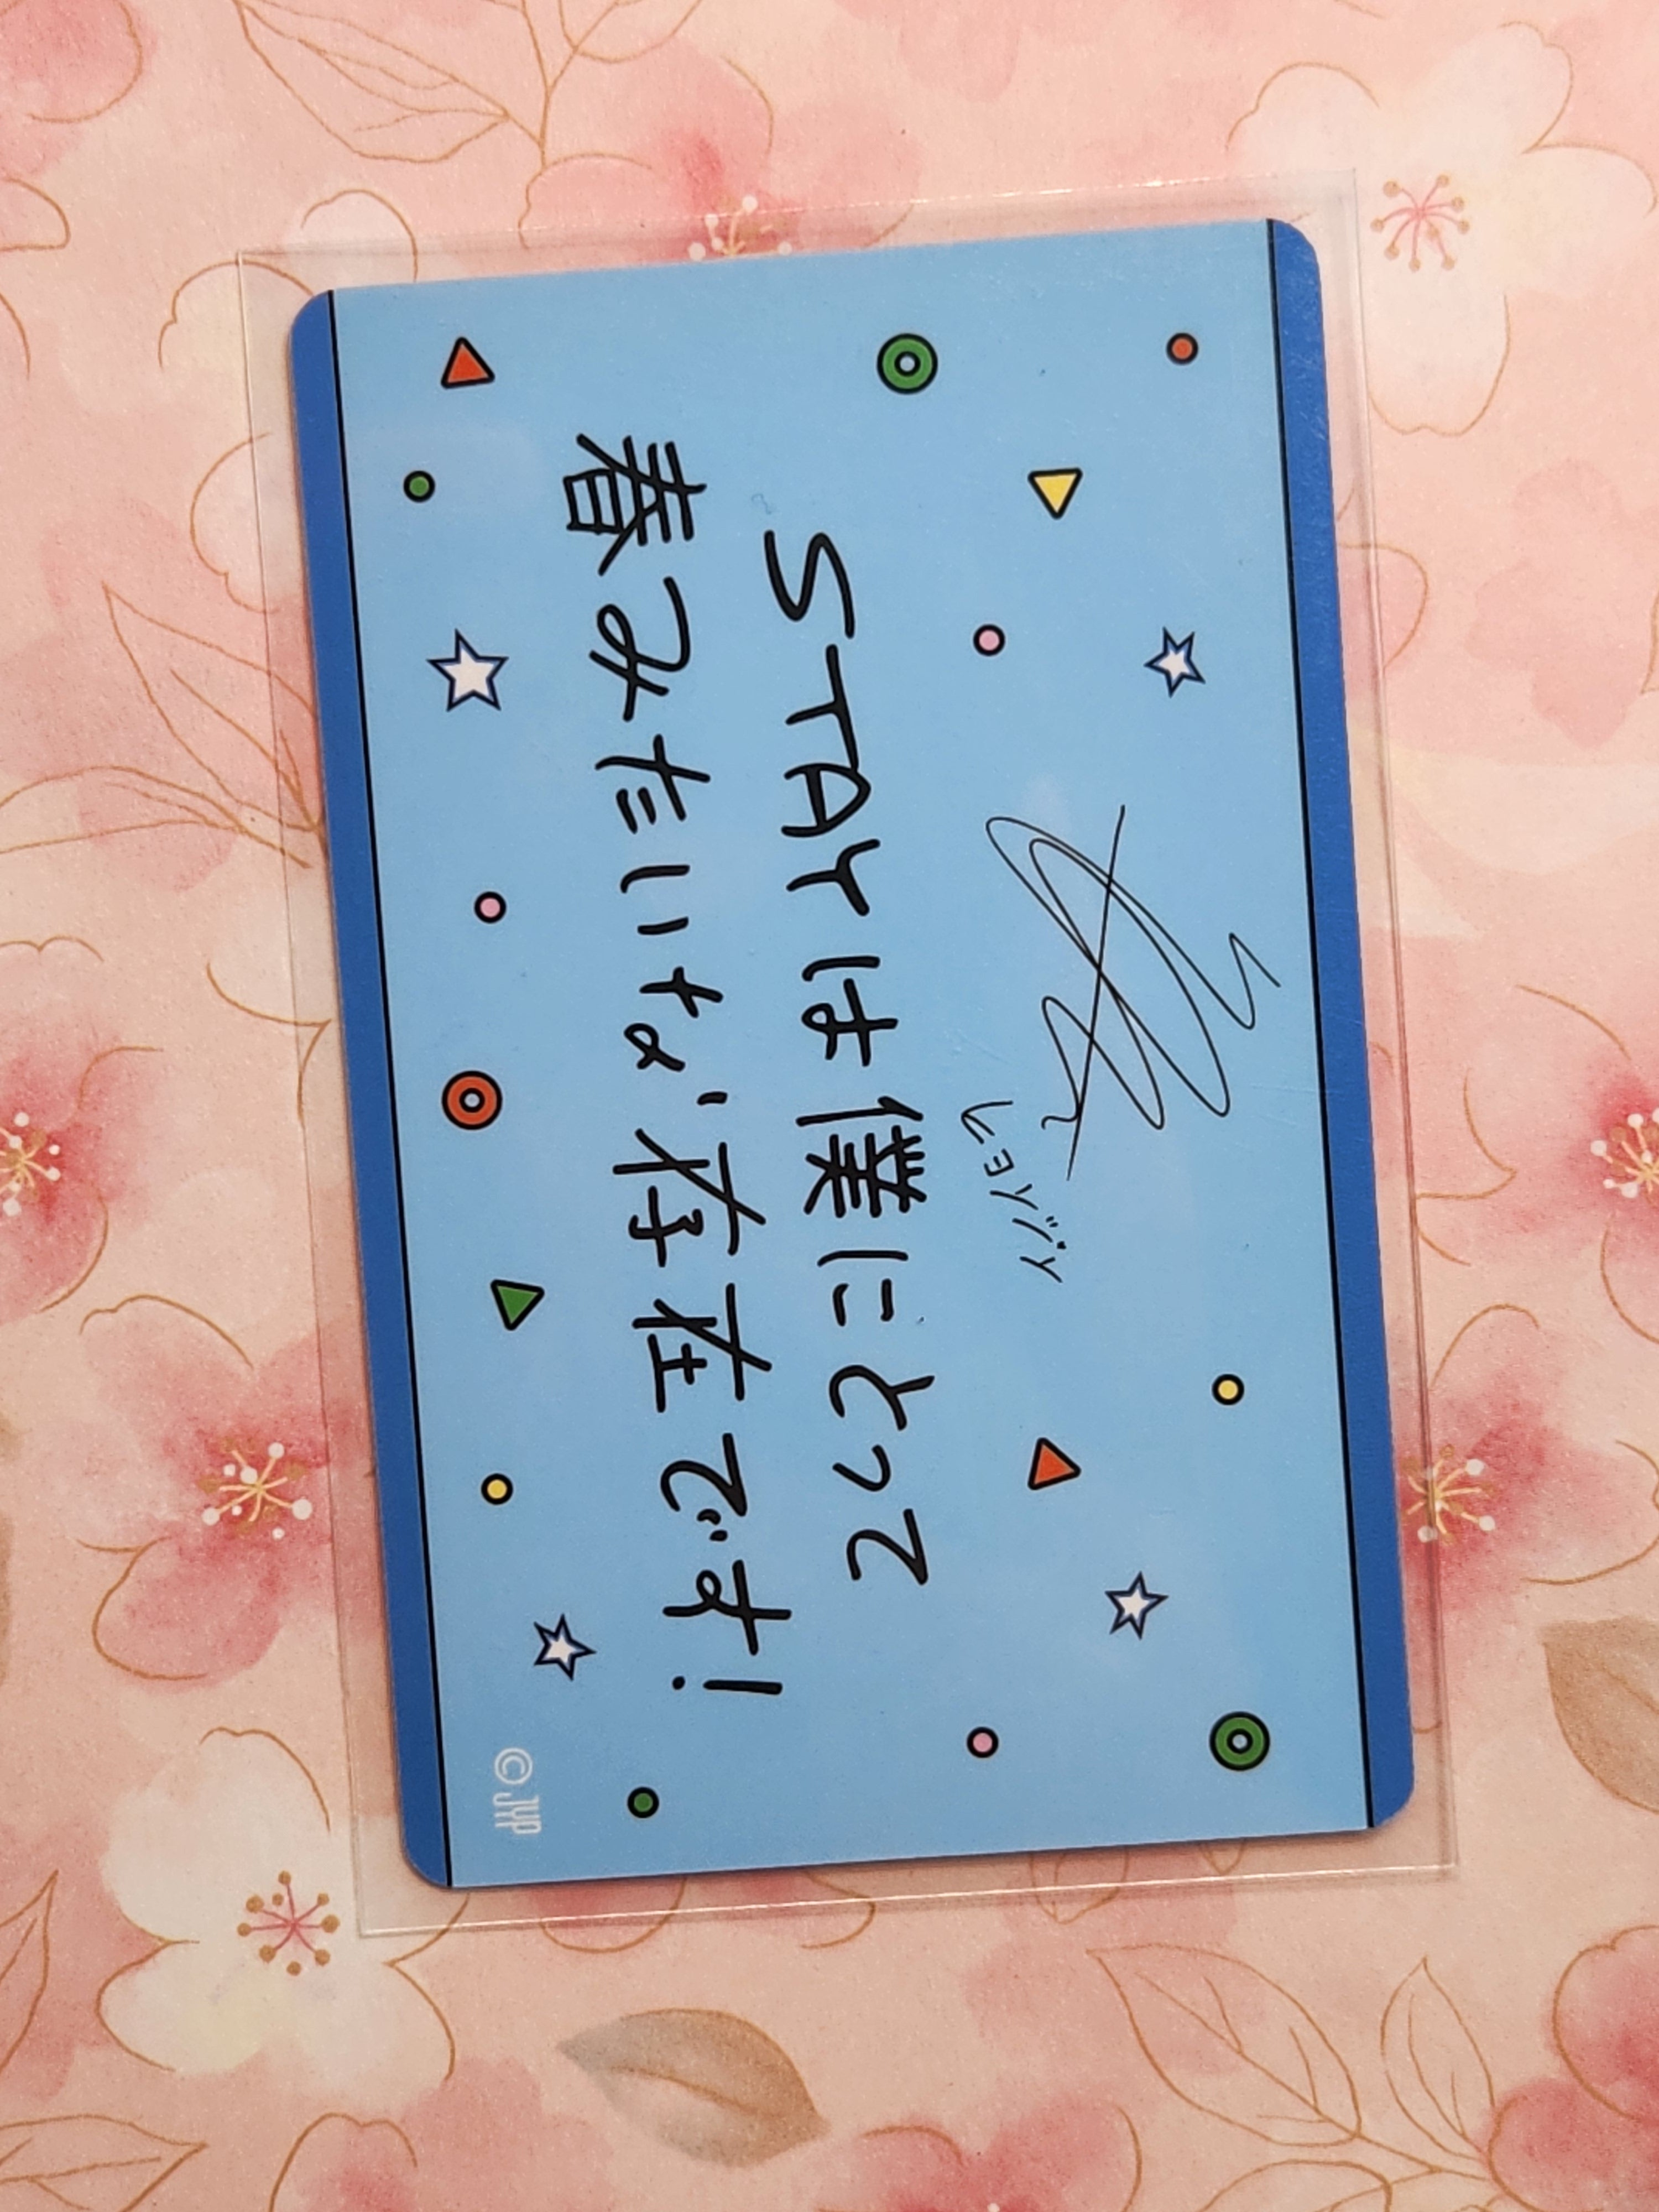 ヒョンジン
STAYは僕にとって
春みたいな存在です!
© JYP